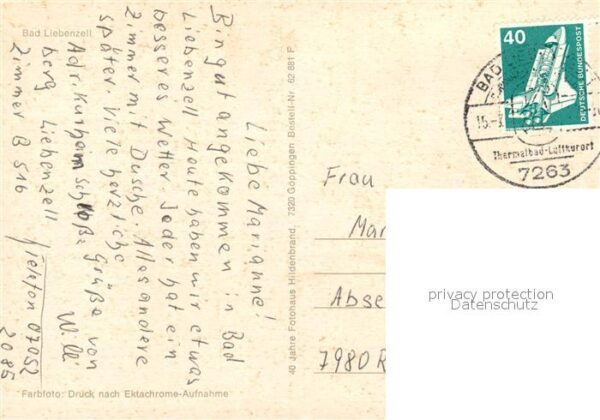 Bad Liebenzell
Liebe Marianne!
Bin gut angekommen in Bad
Liebenzell Heute haben wir etwas
besseres Wetter. Jeder hat ein
Zimmer mit Dusche. Alles andere
später. Viele herzliche
Grüße von
Willi
Adr. Kurheim Schloße
berg Liebenzell
Zimmer B 516
07052
2085
Farbfoto: Druck nach Ektachrome-Aufnahme
40 Jahre Fotohaus Hildenbrand, 7320 Göppingen Bestell-Nr. 62 881 F
40
DEUTSCHE BUNDESPOST
BAD
15.
Thermalbad-Luftkurort
7263
Frau
Mar
Abse
7980 R
privacy protection
Datenschutz